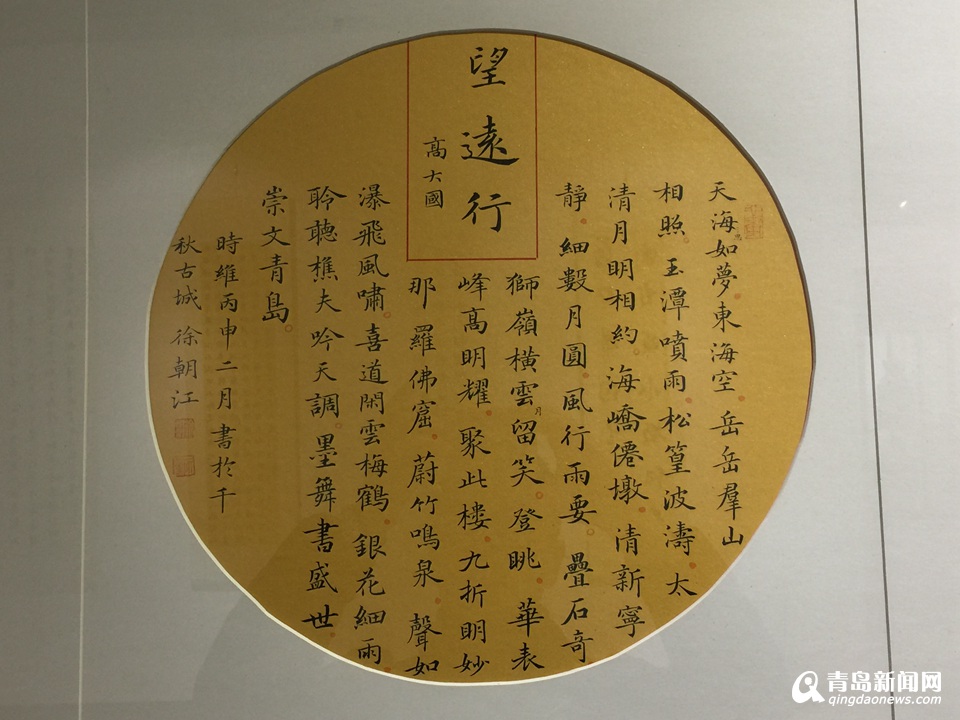 望遠行
高大國
天海如夢東海空岳岳羣山
相照玉潭噴雨松篁波濤太
清月明相約海嶠僊墩清新寧
靜細數月圓風行雨要疊石奇
獅嶺橫雲留笑登眺華表
峰高明耀聚此楼九折明妙
那羅佛窟蔚竹鳴泉聲如
瀑飛風嘯喜道閑雲梅鶴銀花細雨
聆聽樵夫吟天調墨舞書盛世
崇文青島
時維丙申二月書於千
秋古城徐朝江
青岛新闻网
qingdaonews.com